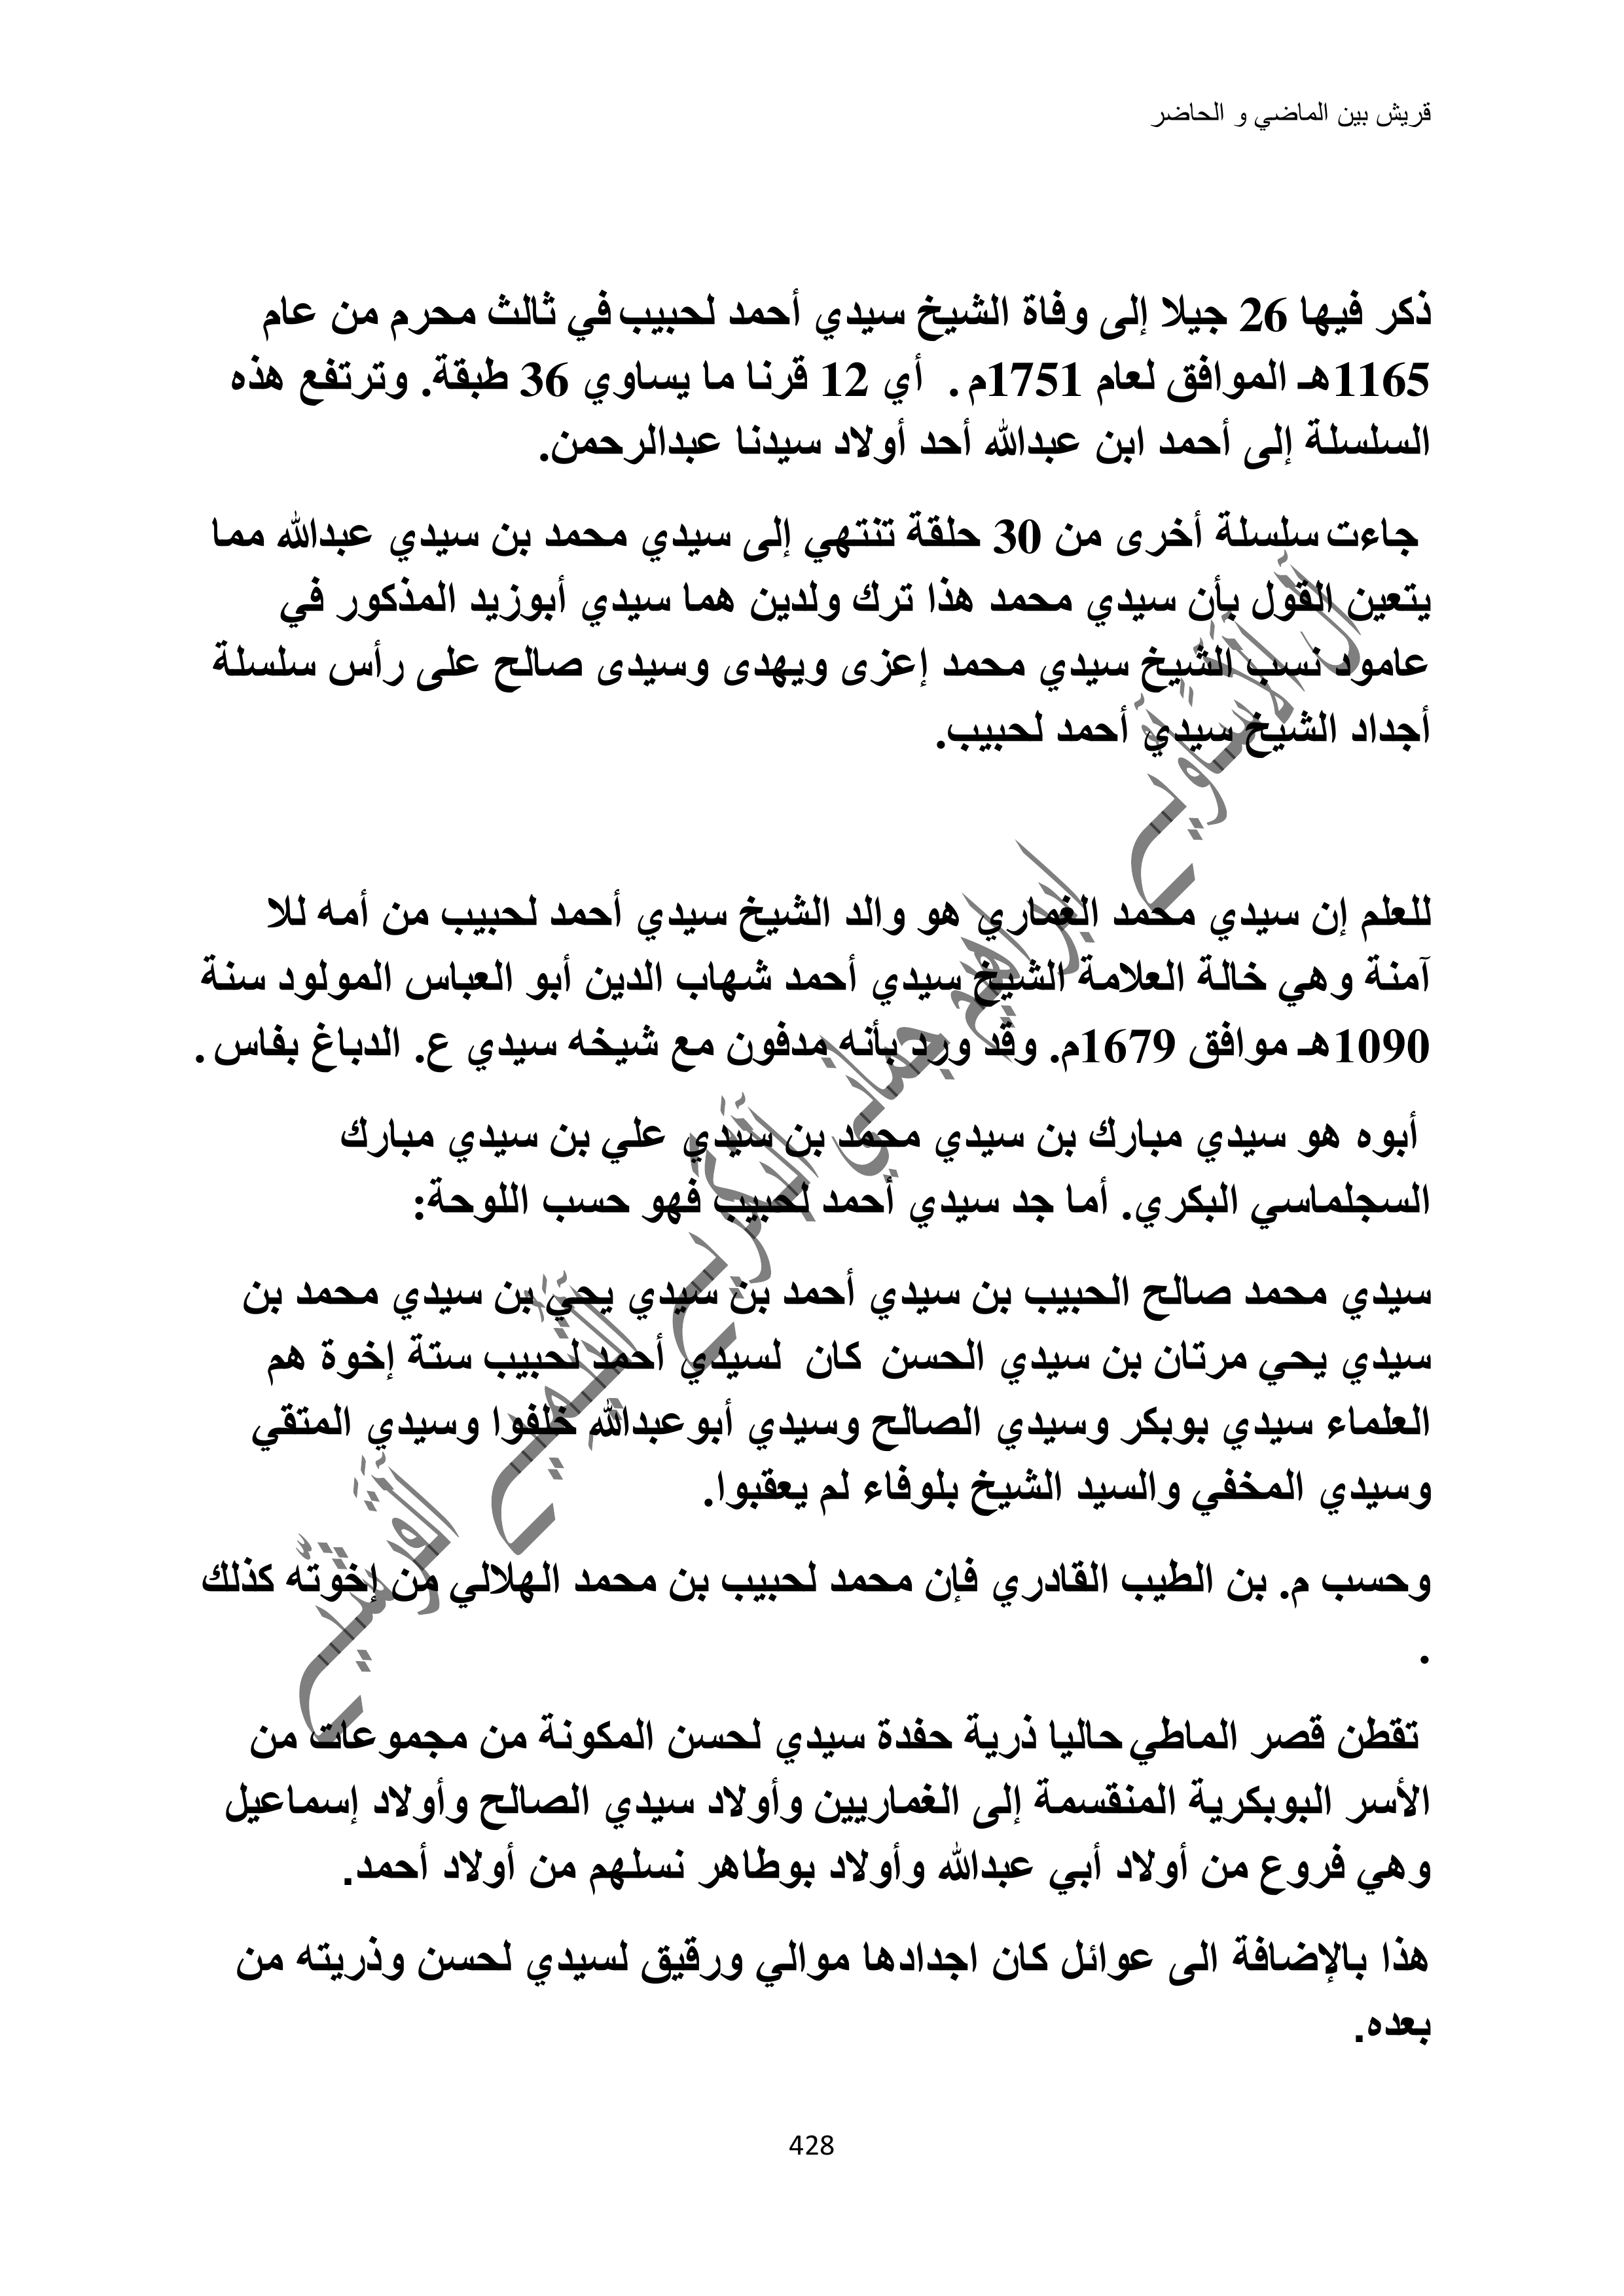 قريش بين الماضي و الحاضر
ذكر فيها 26 جيلا إلى وفاة الشيخ سيدي أحمد لحبيب في ثالث محرم من عام
1165هـ الموافق لعام 1751م . أي 12 قرنا ما يساوي 36 طبقة. وترتفع هذه
السلسلة إلى أحمد ابن عبدالله أحد أولاد سيدنا عبدالرحمن.
جاءت سلسلة أخرى من 30 حلقة تنتهي إلى سيدي محمد بن سيدي عبدالله مما
يتعين القول بأن سيدي محمد هذا ترك ولدين هما سيدي أبوزيد المذكور في
عامود نسب الشيخ سيدي محمد إعزى ويهدى وسيدى صالح على رأس سلسلة
أجداد الشيخ سيدي أحمد لحبيب.
للعلم إن سيدي محمد الغماري هو والد الشيخ سيدي أحمد لحبيب من أمه للا
آمنة وهي خالة العلامة الشيخ سيدي أحمد شهاب الدين أبو العباس المولود سنة
1090هـ موافق 1679م. وقد ورد بأنه مدفون مع شيخه سيدي ع. الدباغ بفاس .
أبوه هو سيدي مبارك بن سيدي محمد بن سيدي علي بن سيدي مبارك
السجلماسي البكري. أما جد سيدي أحمد لحبيب فهو حسب اللوحة:
سيدي محمد صالح الحبيب بن سيدي أحمد بن سيدي يحي بن سيدي محمد بن
سيدي يحي مرتان بن سيدي الحسن كان لسيدي أحمد لحبيب ستة إخوة هم
العلماء سيدي بوبكر وسيدي الصالح وسيدي أبوعبدالله خلفوا وسيدي المتقي
وسيدي المخفي والسيد الشيخ بلوفاء لم يعقبوا.
وحسب م. بن الطيب القادري فإن محمد لحبيب بن محمد الهلالي من إخوته كذلك
.
تقطن قصر الماطي حاليا ذرية حفدة سيدي لحسن المكونة من مجموعات من
الأسر البوبكرية المنقسمة إلى الغماريين وأولاد سيدي الصالح وأولاد إسماعيل
وهي فروع من أولاد أبي عبدالله وأولاد بوطاهر نسلهم من أولاد أحمد.
هذا بالإضافة الى عوائل كان اجدادها موالي ورقيق لسيدي لحسن وذريته من
بعده.
428